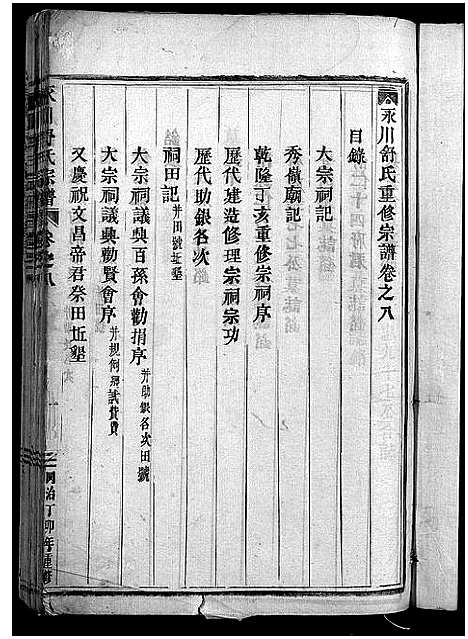 永川舒氏重修宗譜卷之八
目錄
大宗祠記
秀嶺廟記
乾隆丁亥重修宗祠序
歷代建造修理宗祠宗功
歷代助銀各次
祠田記 并田號坵墾
大宗祠議興百孫會勸捐序 并助銀各次田號
大宗祠議興勸賢會序 并規例鄉試費
又慶祝文昌帝君祭田坵墾
永川舒氏宗譜 卷之八
同治丁卯年重修